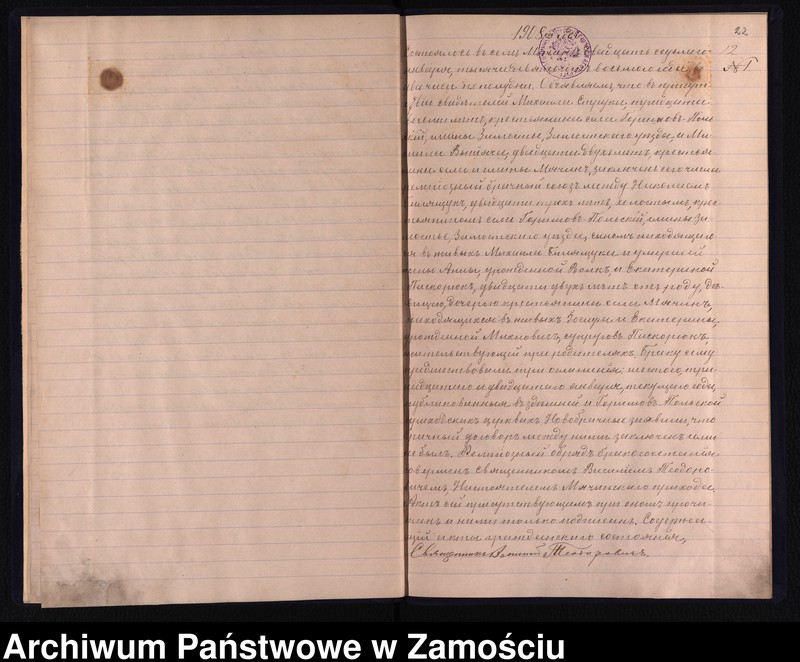 1908
22
12
№ 1.
Состоялось въ семъ двадцать седьмого
января, тысяча девятьсотъ восьмого года, въ
два часа по полудни. Объявляемъ, что въ присут-
ствіи свидѣтелей Михаила Струка, тридцати
лѣтъ, крестьянина села Горышовъ-Поль-
скій, гмины Замостье, Замостскаго уѣзда, и Ми-
хаила двадцати двухъ лѣтъ, крестья-
нина села и гмины Мячинъ, заключенъ сего числа
религіозный брачный союзъ между Николаемъ
двадцати трехъ лѣтъ, холостымъ, крес-
тьяниномъ села Горышовъ-Польскій, гмины За-
мостье, Замостскаго уѣзда, сыномъ находящаго-
ся въ живыхъ Михаила и умершей
жены Анны, урожденной Волкъ, и Екатериной
Пискорюкъ, двадцати двухъ лѣтъ отъ роду, дѣ-
вицею, дочерью крестьянина села Мячинъ,
находящихся въ живыхъ Іосифа и Екатерины,
урожденной Михновичъ, супруговъ Пискорюкъ,
жительствующей при родителяхъ. Браку сему
предшествовали три оглашенія: шестого, три-
надцатого и двадцатого января, текущаго года,
публикованныя въ здѣшней и Горышовъ-Польской
приходскихъ церквахъ. Новобрачные заявили, что
брачный договоръ между ними заключенъ или
не былъ. Религіозный обрядъ бракосочетанія
совершенъ священникомъ Василіемъ Теодоро-
вичемъ, Настоятелемъ Мячинскаго прихода.
Актъ сей присутствующимъ при ономъ прочи-
танъ и нами только подписанъ. Содержа-
щій акты гражданскаго состоянія,
Священникъ Василій Теодоровичъ.
Archiwum Państwowe w Zamościu